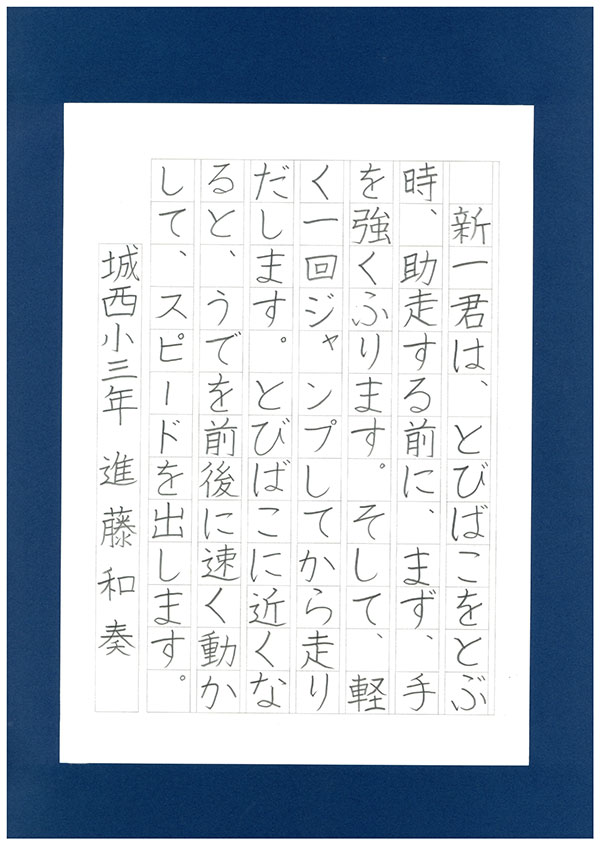 新一君は、とびばこをとぶ
時、助走する前に、まず、手
を強くふります。そして、軽
く一回ジャンプしてから走り
だします。とびばこに近くな
ると、うでを前後に速く動か
して、スピードを出します。
城西小三年 進藤和奏